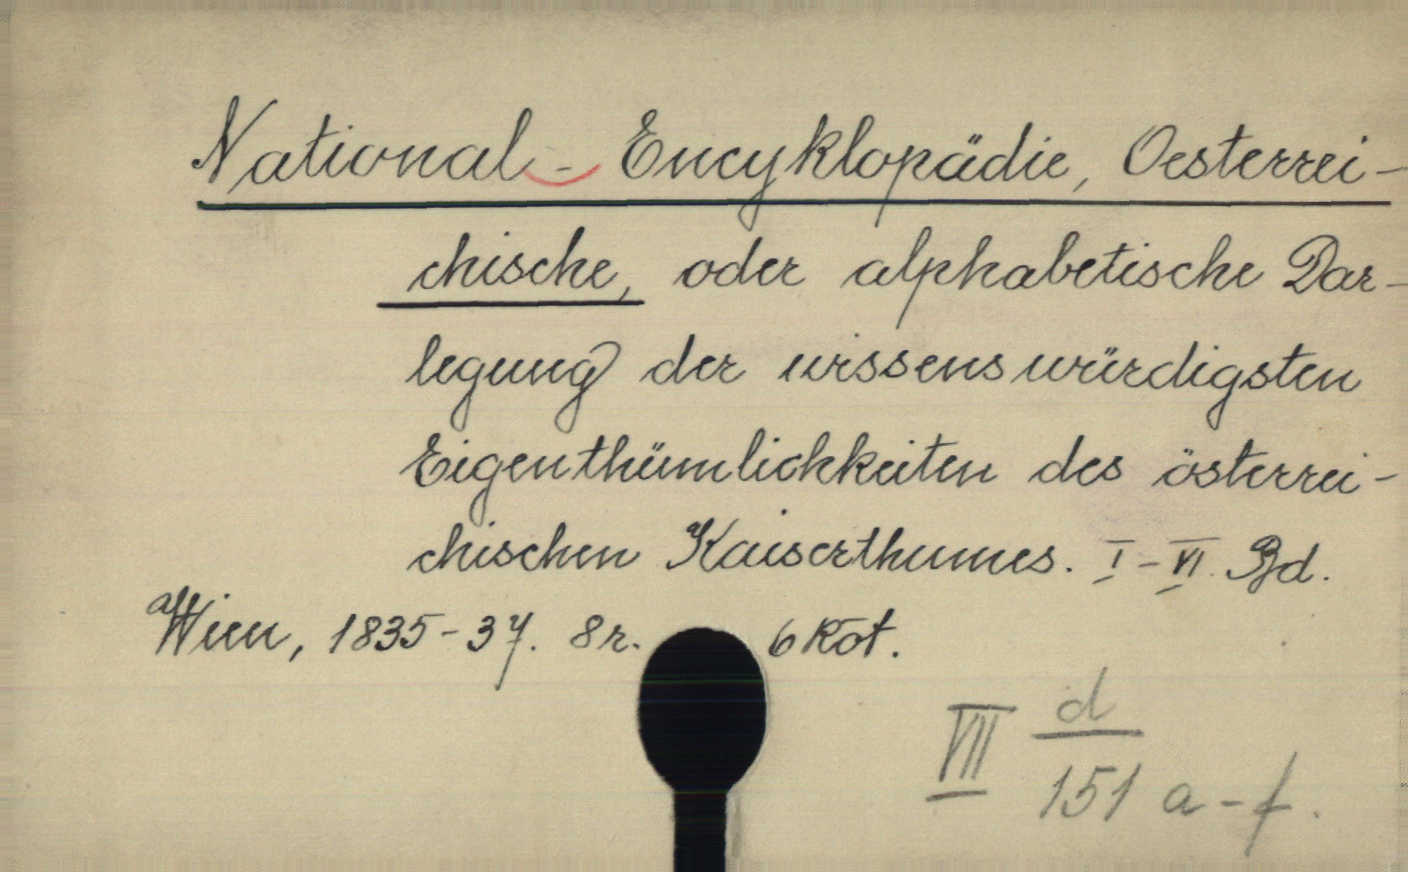 National - Encyklopädie, Oesterrei-
chische, oder alphabetische Dar-
legung der wissenswürdigsten
Eigenthümlichkeiten des österrei-
chischen Kaiserthumes. I-VI. Bd.
Wien, 1835-37. 8r. 6 Köt.
VII d/151 a-f.